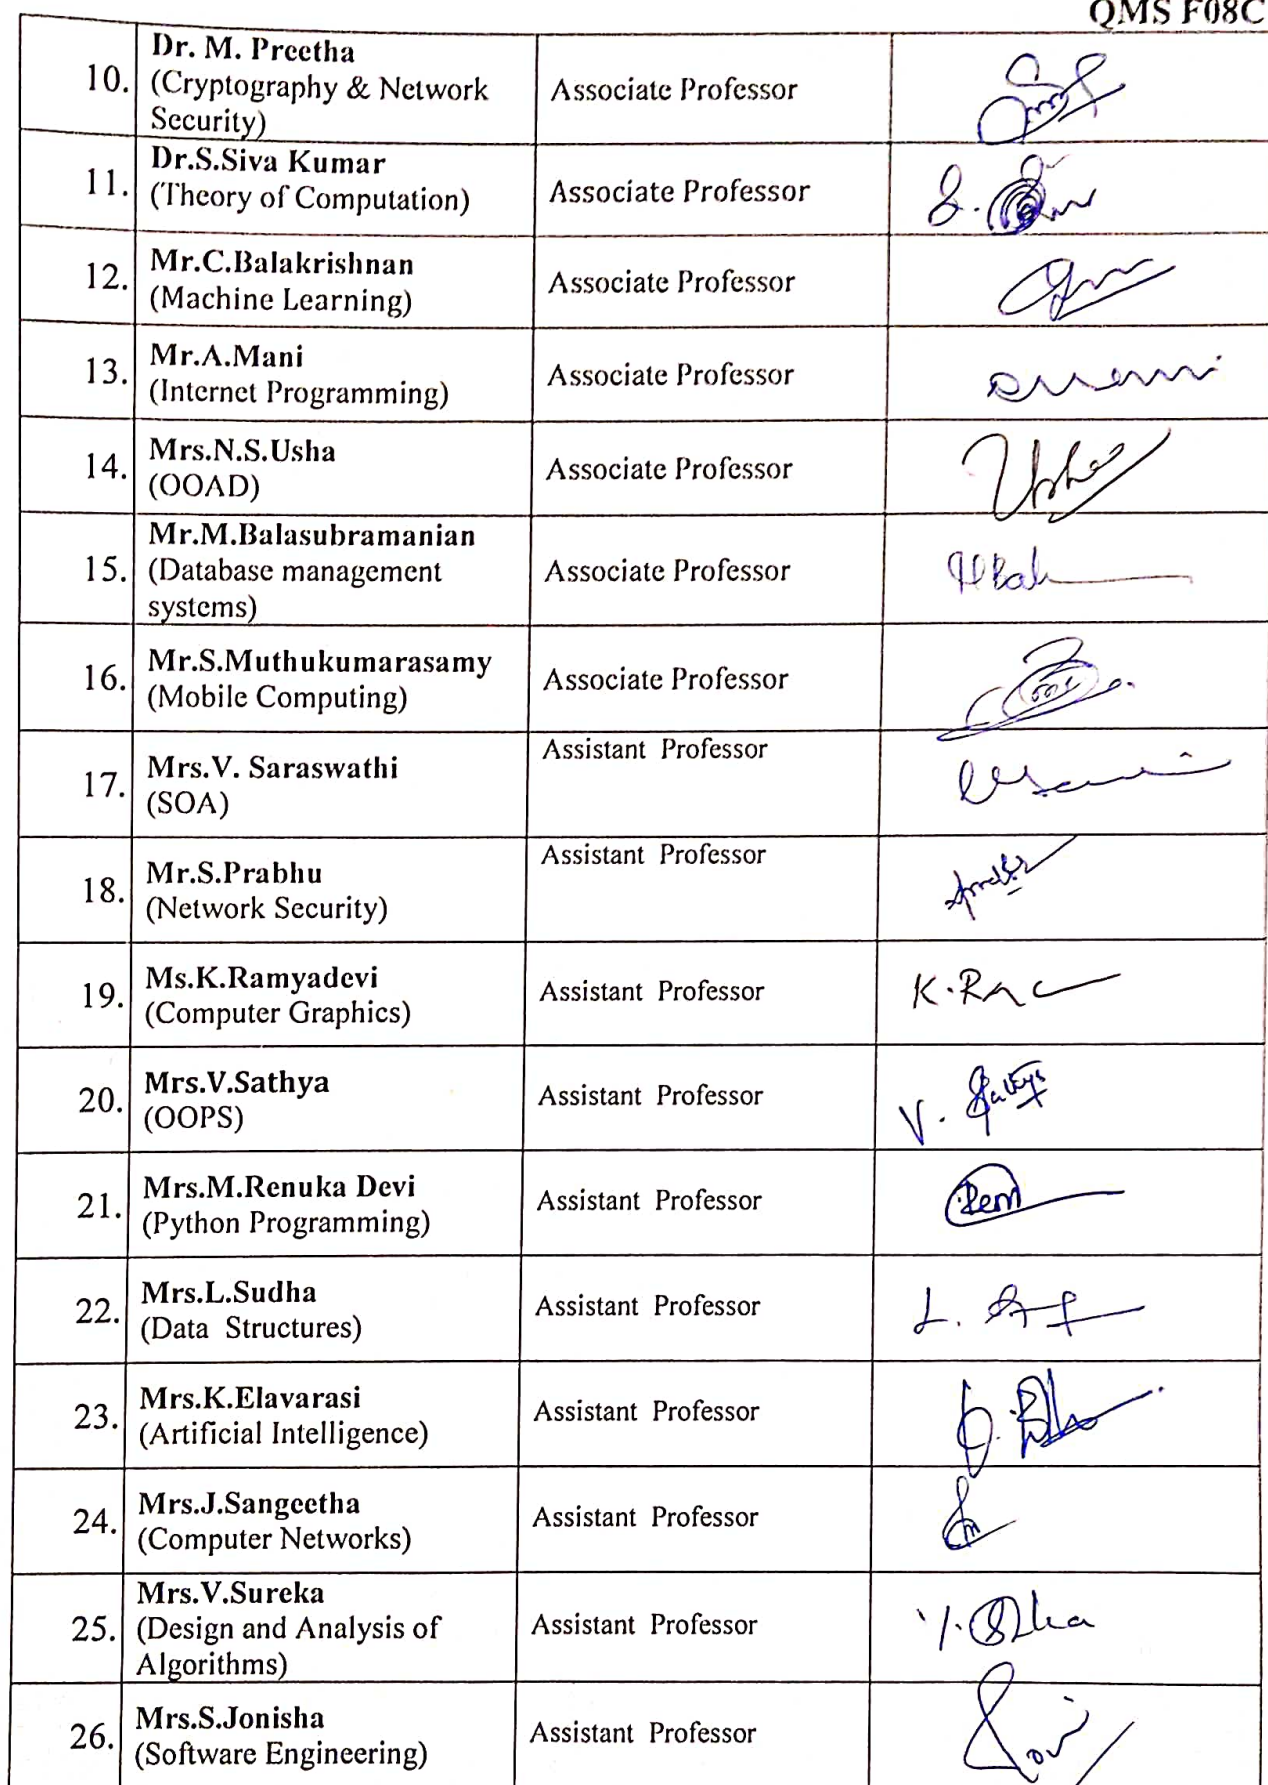 QMS F08C
10. Dr. M. Preetha
(Cryptography & Network
Security)
Associate Professor
11. Dr.S.Siva Kumar
(Theory of Computation)
Associate Professor
12. Mr.C.Balakrishnan
(Machine Learning)
Associate Professor
13. Mr.A.Mani
(Internet Programming)
Associate Professor
14. Mrs.N.S.Usha
(OOAD)
Associate Professor
15. Mr.M.Balasubramanian
(Database management
systems)
Associate Professor
16. Mr.S.Muthukumarasamy
(Mobile Computing)
Associate Professor
17. Mrs.V. Saraswathi
(SOA)
Assistant Professor
18. Mr.S.Prabhu
(Network Security)
Assistant Professor
19. Ms.K.Ramyadevi
(Computer Graphics)
Assistant Professor
20. Mrs.V.Sathya
(OOPS)
Assistant Professor
V. Sathya
21. Mrs.M.Renuka Devi
(Python Programming)
Assistant Professor
22. Mrs.L.Sudha
(Data Structures)
Assistant Professor
23. Mrs.K.Elavarasi
(Artificial Intelligence)
Assistant Professor
24. Mrs.J.Sangeetha
(Computer Networks)
Assistant Professor
25. Mrs.V.Sureka
(Design and Analysis of
Algorithms)
Assistant Professor
26. Mrs.S.Jonisha
(Software Engineering)
Assistant Professor